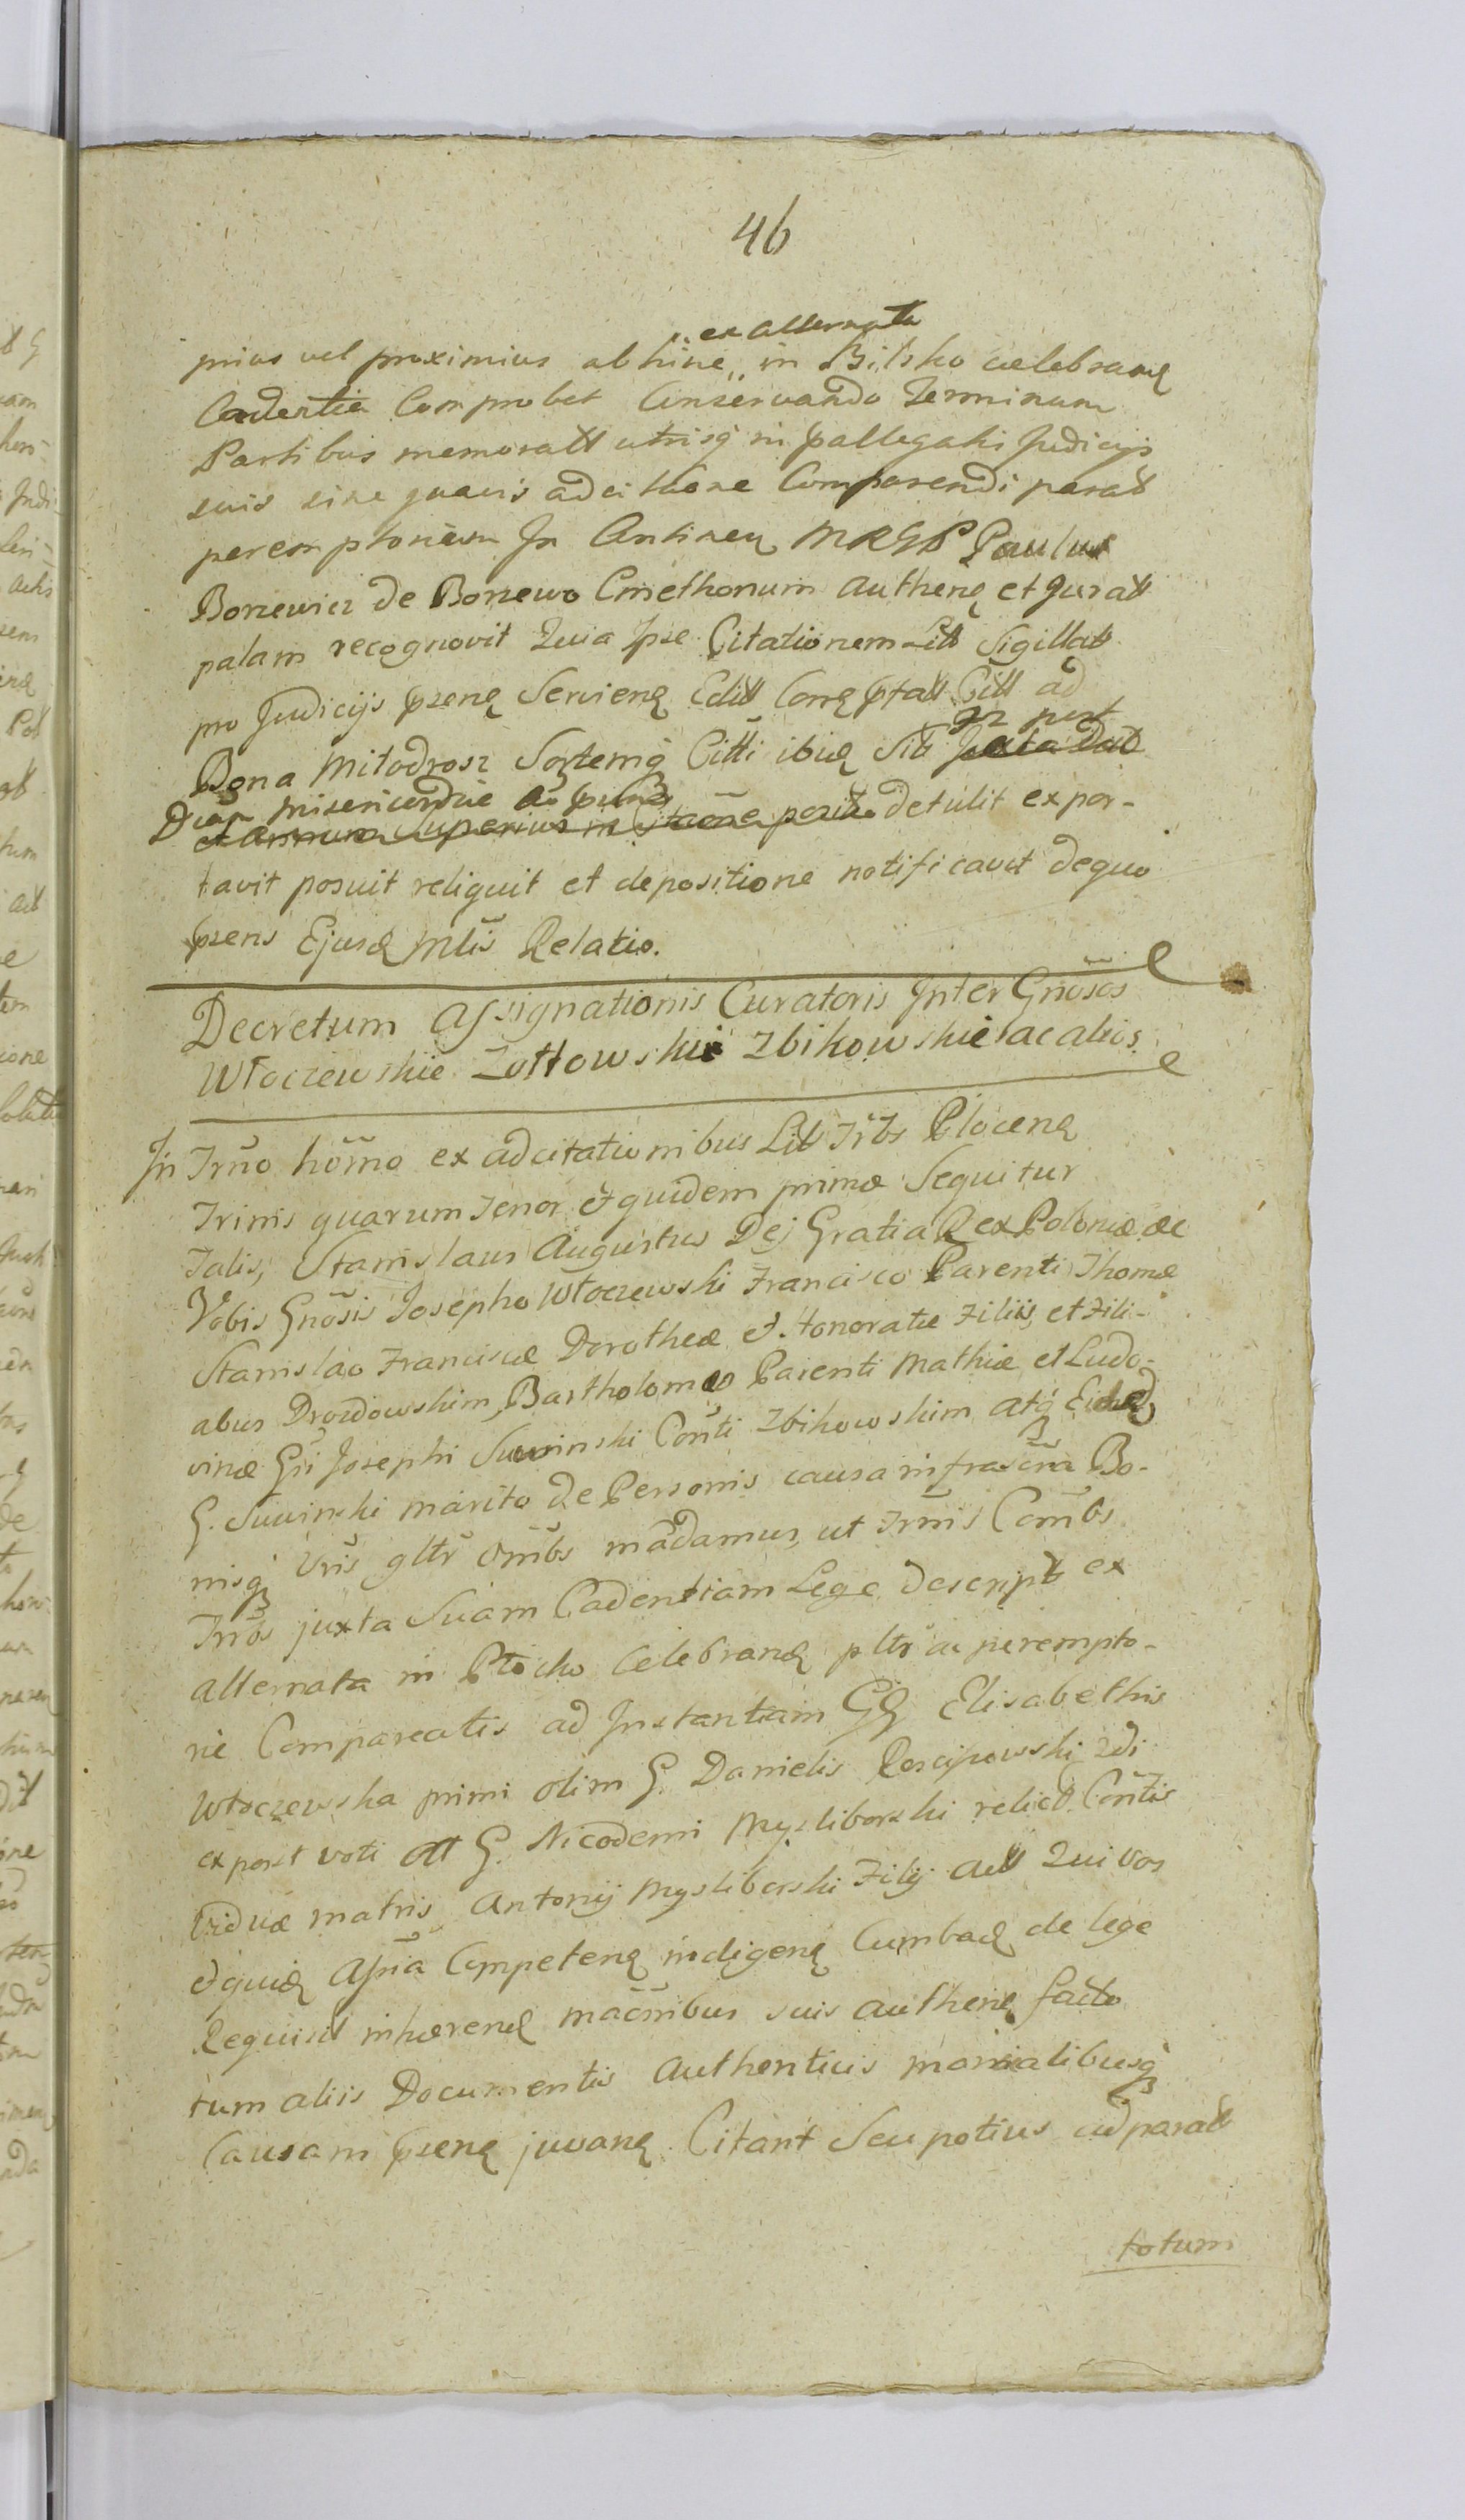 46
ex alternata
prius vel proximius abhinc „ in Bilsko celebranđ
Cadentia Comprobet Conservando Terminum
Partibus memoratt utrisq in pallegatis Judicijs
suis sine quavis adcitaone Comparendi parat
peremptorium In Continen MRGP Paulus
Borzewicz de Borzewo Cmethonum authenę et Juratt
palam recognovit Quia Ipse Citationem Litt Sigillat
pro Judicijs pzenę Servienę Editt Conę ptatt Citt ad
Bona Miłodrosz Sortemq Citti ibiđ Sit Juxta Dat
3z post
Dcam Misericordiæ ao
et Annum Superius in Citaone posit detulit expor-
tavit posuit reliquit et depositione notificavit dequo
pzens Ejusđ Mtis Relatio.
Decretum Assignationis Curatoris Inter Gnosos
Włoczewskie Zołtowskie Zbikowskie ac alios
In Trno homo ex adcitationibus Litt Trbs Plocenę
Trinis quarum Tenor et quidem primæ Sequitur
Talis, Stanislaus Augustus Dej Gratia Rex Poloniæ æc
Vobis Gnosis Josepho Włoczewski Francisco Parenti Thomæ
Stanislao Franciscæ Dorotheæ et Honoratæ Filiis, et Fili-
abus Drozdowskim, Bartholomeo Parenti Mathiæ et Ludo-
vinæ Gsi Josephi Suwinski Conti Zbikowskim atq Eidđ
G. Suwinski marito de Personis causa infrascrta Bo-
nisq Vris gltr omibs mądamus, ut Trnis Combs
Trrbs juxta Suam Cadentiam Lege descript ex
alternata in Płocko Celebranđ pltr ac perempto-
rie Compareatis ad Instantiam GG Elisabethis
Włoczewska primi olim G. Danielis Roscipowski, 2di
expost voti att G. Nicodemi Mysliborski relict Contis
Viduæ matris, Antonij Mysliborski Filij att Qui vos
equiđ Assria Competenę indigenę Cumbađ de lege
Requisit inhærenđ macnibus suis authenę facto
tum aliis Documentis Authenticis monialibusq
Causam pzenę juvanę Citant Seu potius adparatt
totum